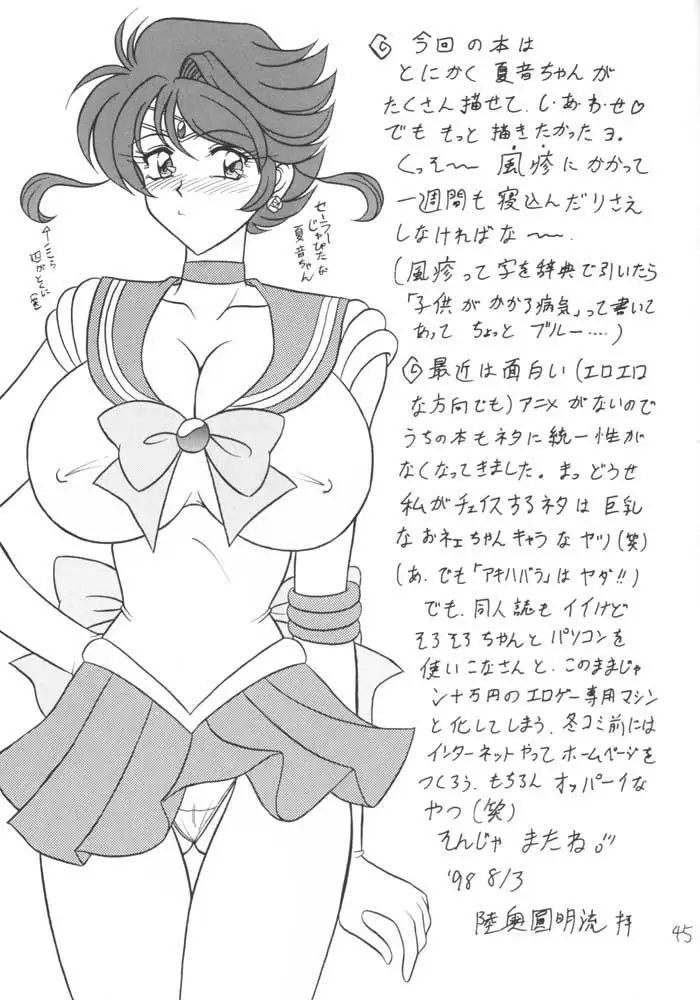 今回の本は
とにかく 夏音ちゃんが
たくさん描せて、し・あ・わ・せ♡
でも もっと 描きたかったヨ。
くっそ〜〜 風疹にかかって
一週間も 寝込んだりさえ
しなければな〜〜.
(風疹って字を辞典で引いたら
「子供がかかる病気」って書いて
あって ちょっと ブルー‥‥)
最近は面白い(エロエロ
な方向でも)アニメがないので
うちの本もネタに統一性が
なくなってきました。まっ どうせ
私がチェイスするネタは 巨乳
な おネェちゃんキャラな ヤツ(笑)
(あ、でも「アキハバラ」は ヤダ!!)
でも、同人誌も イイけど
そろそろ ちゃんと パソコンを
使いこなさんと、このままじゃ
ン十万円のエロゲー専用マシン
と化してしまう、冬コミ前には
インターネットやって ホームページを
つくろう、もちろん オッパーイな
やつ(笑)
そんじゃ またね
'98 8/3
陸奥圓明流 拝
セーラー
じゅぴたな
夏音ちゃん
45